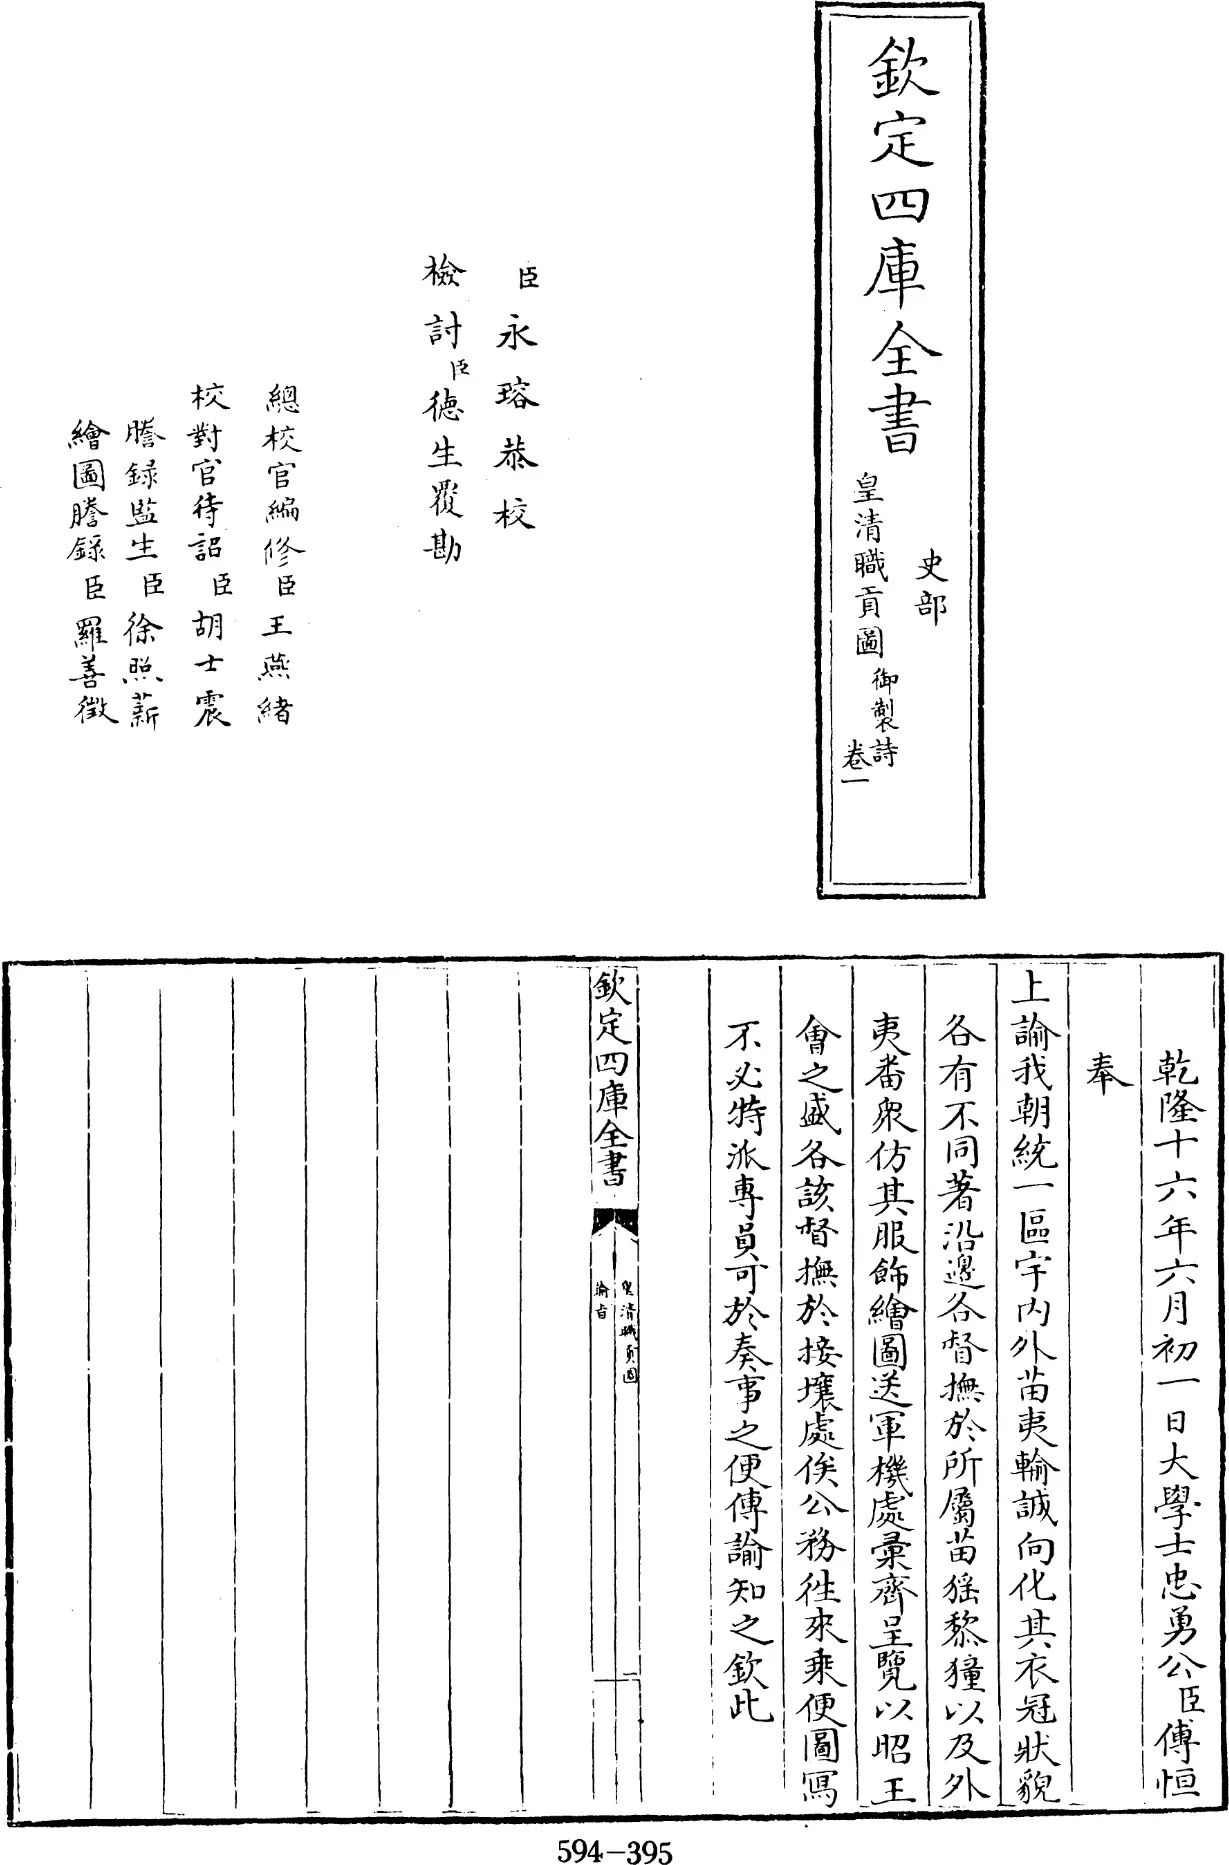 欽定四庫全書
史部
皇清職貢圖
御製詩
卷一
臣永瑢恭校
檢討臣德生覆勘
總校官編修臣王燕緒
校對官待詔臣胡士震
謄錄監生臣徐照薪
繪圖謄錄臣羅善徵
乾隆十六年六月初一日大學士忠勇公臣傅恒
奉
上諭我朝統一區宇内外苗夷輸誠向化其衣冠狀貌
各有不同著沿邊各督撫於所屬苗猺黎獞以及外
夷番衆仿其服飾繪圖送軍機處彙齊呈覽以昭王
㑹之盛各該督撫於接壤處俟公務往來乘便圖寫
不必特派專員可於奏事之便傳諭知之欽此
欽定四庫全書
皇清職貢圖
諭旨
二
594-395